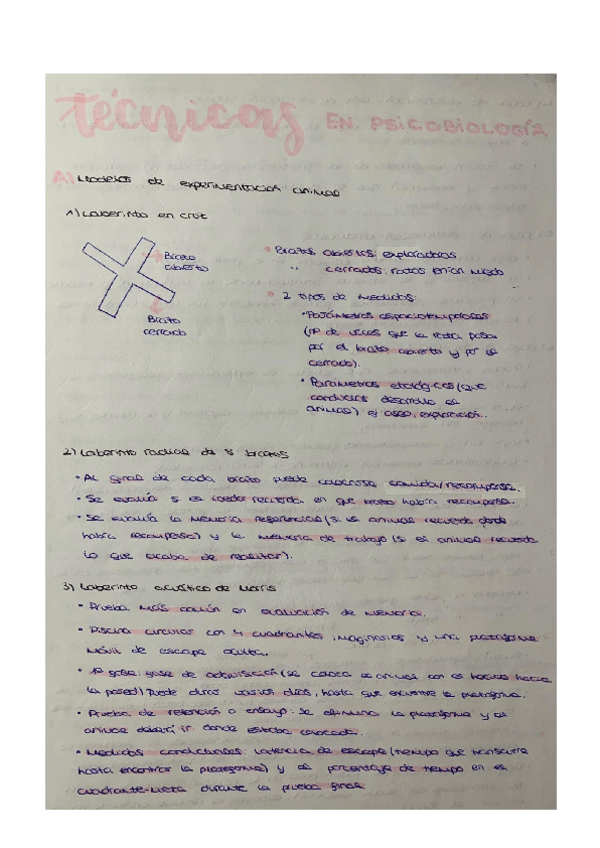 técnicas EN PSICOBIOLOGÍA
A) Modelos de experimentación animal
1) Laberinto en cruz
Brazo
abierto
Brazo
cerrado
• Brazos abiertos: exploradoras
" cerrados: ratas tenían miedo
• 2 tipos de medidas:
• Parámetros espaciotemporales
(nº de veces que la rata pasa
por el brazo abierto y por el
cerrado).
• Parámetros etológicos (que
conductas desarrolla el
animal) ej aseo, exploración..
2) Laberinto radial de 8 brazos
• Al final de cada brazo puede colocarse comida/recompensa.
• Se evalúa si el roedor recuerda en que brazo había recompensa.
• Se evalúa la memoria referencial (si el animal recuerda donde
había recompensa) y la memoria de trabajo (si el animal recuerda
lo que acaba de realizar).
3) Laberinto acuático de Morris
• Prueba más común en evaluación de memoria.
• Piscina circular con 4 cuadrantes imaginarios y una plataforma
móvil de escape oculta.
• 1ª fase: fase de adquisición (se coloca al animal con el hocico hacia
la pared) Puede durar varios días, hasta que encuentre la plataforma.
• Prueba de retención o ensayo: se elimina la plataforma y el
animal deberá ir donde estaba colocada.
• Medidas conductuales: latencia de escape (tiempo que transcurre
hasta encontrar la plataforma) y el porcentaje de tiempo en el
cuadrante-meta durante la prueba final